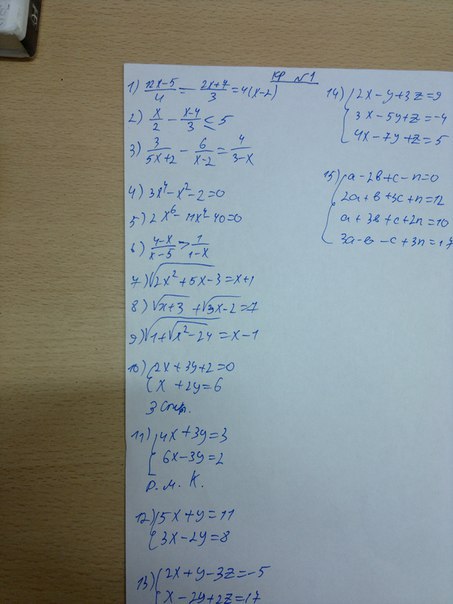 КР №1
1) (12x-5)/4 - (2x+7)/3 = 4(x-2)
2) x/2 - (x-4)/3 ≤ 5
3) 3/(5x+2) - 6/(x-2) = 4/(3-x)
4) 3x⁴-x²-2=0
5) 2x⁶- 11x²-40=0
6) (4-x)/(x-5) > 1/(1-x)
7) √(2x²+5x-3)=x+1
8) √(x+3) + √(3x-2)=7
9) √(1+√(x²-24))=x-1
10) {2x+3y+2=0
x+2y=6
3 спос.
11) {4x+3y=3
6x-3y=2
Р. М. К.
12) {5x+y=11
3x-2y=8
13) {2x+y-3z=-5
x-2y+2z=17
14) {2x-y+3z=9
3x-5y+z=-4
4x-7y+z=5
15) {a-2b+c-n=0
2a+b+3c+n=12
a+3b+c+2n=10
3a-b-c+3n=17